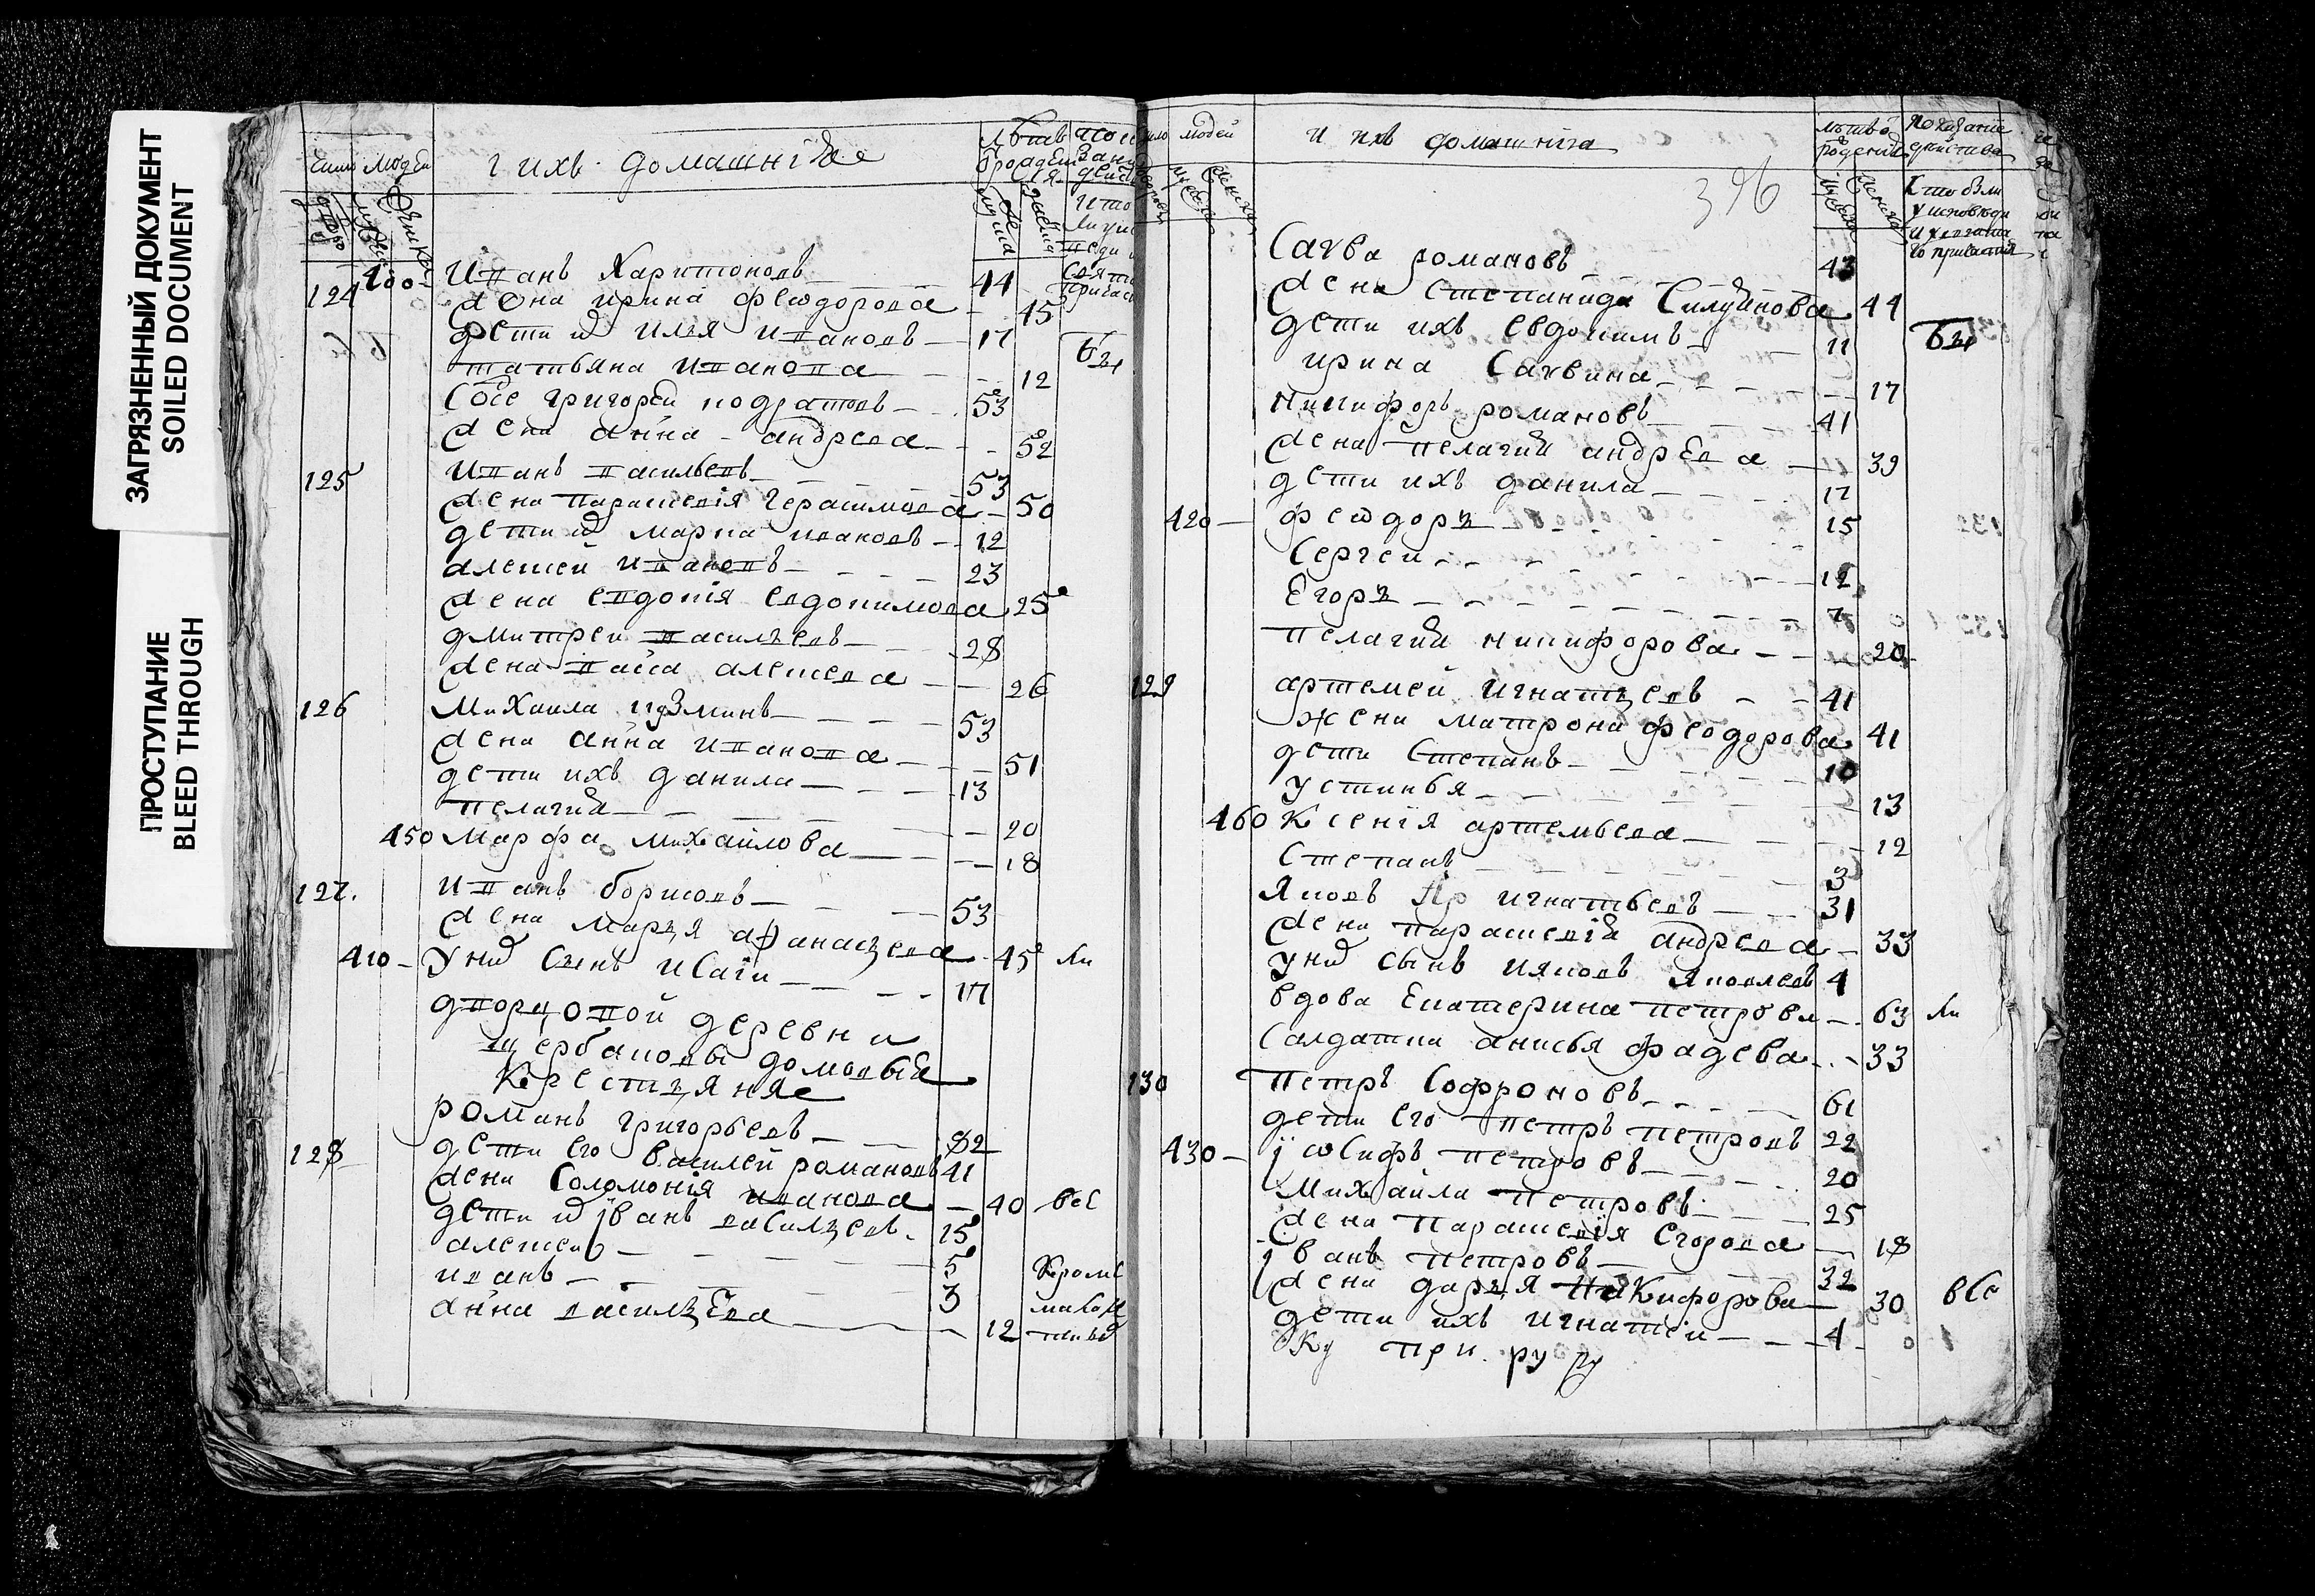 ЗАГРЯЗНЕННЫЙ ДОКУМЕНТ
SOILED DOCUMENT
ПРОСТУПАНИЕ
BLEED THROUGH
число людей
и ихъ домашнïе
124 400 Иванъ Харитоновъ 44
жена ирина феѡдорова 45
дети их Илья Ивановъ 17
татьяна Иванова 12
григорей 53
жена анна андреева 52
125 Иванъ васильевъ 53
жена парасковïя герасимова 50
дети их марка ивановъ 12
алексей Ивановъ 23
жена Евдокïя Евдокимова 25
дмитреи васильевъ 28
жена алексеева 26
126 Михаила кузминъ 53
жена анна Иванова 51
дети ихъ данила 13
пелагия 20
450 марфа михаилова 18
127. Иванъ борисовъ 53
жена марья афанасьева 45
410 у них сынъ Исаïи 17
дворцовой деревни
щербаковы домовыя
Крестьяня
романъ григорьевъ 82
128 дети его василей романовъ 41
жена Соломонïя иванова 40 все
дети их iванъ васильевъ 15
алексей 5
иванъ 3 Кроме
анна васильева 12
и ихъ домашнïя
396
Савва романовъ 43
жена степанида Силуянова 44
дети ихъ Евдокимъ 11
ирина Саввина 17
никифоръ романовъ 41
жена пелагия андреева 39
дети ихъ данила 17
420 феѡдоръ 15
Сергеи 12
Егоръ 7
пелагия никифорова 20
129 артемей игнатьевъ 41
жена матрона феодорова 41
дети Степанъ 10
устинья 13
460 Ксенïя артемьева 12
Степанъ 3
Яковъ игнатьевъ 31
жена парасковïя андреева 33
у них сынъ Яковлевъ 4
вдова Екатерина петрова 63
Салдатка анисья фадеева 33
130 петръ Софроновъ 61
дети его петръ петровъ 22
430 iѡсифъ петровъ 20
Михаила петровъ 25
жена парасковïя Егорова 18
iванъ петровъ 32
жена дарья Никифорова 30 все
дети ихъ игнатей 4